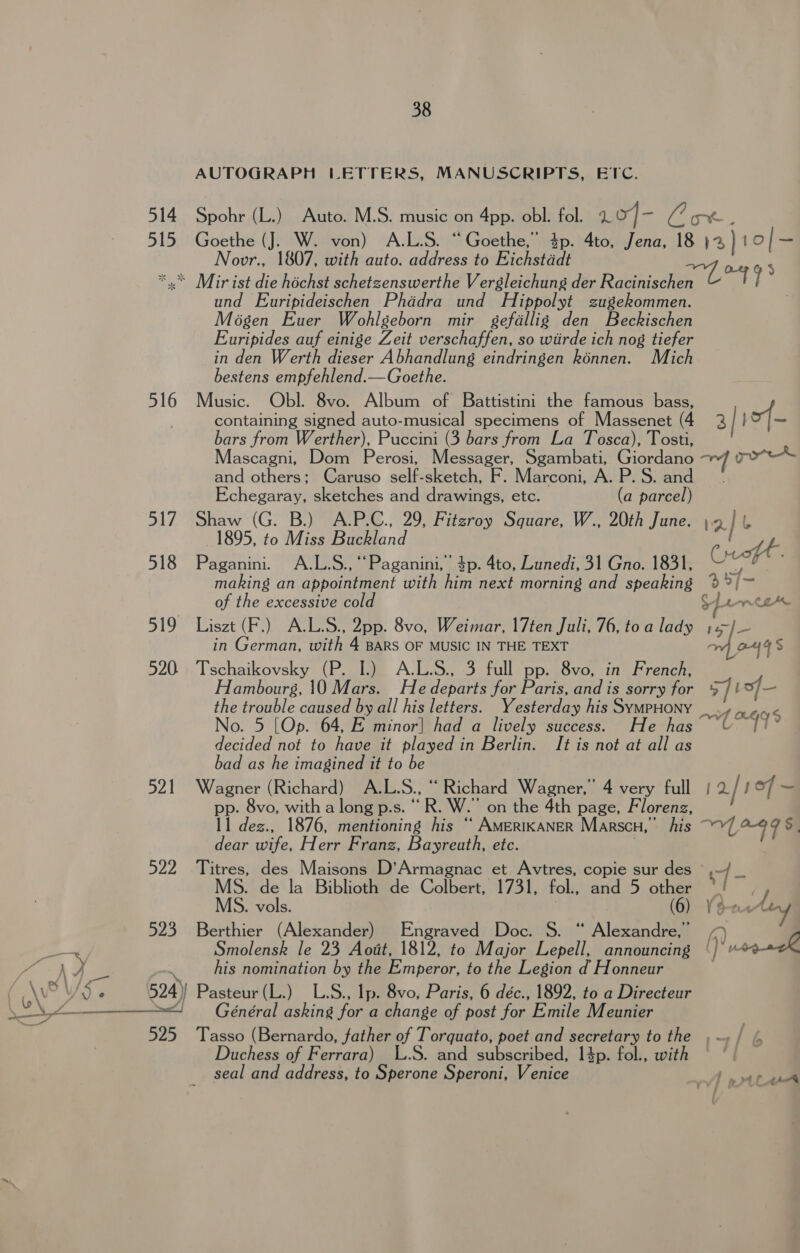 38
AUTOGRAPH LETTERS, MANUSCRIPTS, ETC.
514 Spohr (L.) Auto. M.S. music on 4pp. obl. fol.
515 Goethe (J. W. von) A.L.S. “Goethe,” ½p. 4to, Jena, 18
Novr., 1807, with auto. address to Eichstädt
*⁎* Mir ist die höchst schetzenswerthe Vergleichung der Racinischen
und Euripideischen Phädra und Hippolyt zugekommen.
Mögen Euer Wohlgeborn mir gefällig den Beckischen
Euripides auf einige Zeit verschaffen, so würde ich nog tiefer
in den Werth dieser Abhandlung eindringen können. Mich
bestens empfehlend.—Goethe.
516 Music. Obl. 8vo. Album of Battistini the famous bass,
containing signed auto-musical specimens of Massenet (4
bars from Werther), Puccini (3 bars from La Tosca), Tosti,
Mascagni, Dom Perosi, Messager, Sgambati, Giordano
and others; Caruso self-sketch, F. Marconi, A. P. S. and
Echegaray, sketches and drawings, etc. (a parcel)
517 Shaw (G. B.) A.P.C., 29, Fitzroy Square, W., 20th June.
1895, to Miss Buckland
518 Paganini. A.L.S., “Paganini,” ½p. 4to, Lunedi, 31 Gno. 1831,
making an appointment with him next morning and speaking
of the excessive cold
519 Liszt (F.) A.L.S., 2pp. 8vo, Weimar, 17ten Juli, 76, to a lady
in German, with 4 BARS OF MUSIC IN THE TEXT
520 Tschaikovsky (P. I.) A.L.S., 3 full pp. 8vo, in French,
Hambourg, 10 Mars. He departs for Paris, and is sorry for
the trouble caused by all his letters. Yesterday his SYMPHONY
No. 5 [Op. 64, E minor] had a lively success. He has
decided not to have it played in Berlin. It is not at all as
bad as he imagined it to be
521 Wagner (Richard) A.L.S., “Richard Wagner,” 4 very full
pp. 8vo, with a long p.s. “R. W.” on the 4th page, Florenz,
11 dez., 1876, mentioning his “AMERIKANER MARSCH,” his
dear wife, Herr Franz, Bayreuth, etc.
522 Titres, des Maisons D’Armagnac et Avtres, copie sur des
MS. de la Biblioth de Colbert, 1731, fol., and 5 other
MS. vols. (6)
523 Berthier (Alexander) Engraved Doc. S. “Alexandre,”
Smolensk le 23 Août, 1812, to Major Lepell, announcing
his nomination by the Emperor, to the Legion d’Honneur
524 Pasteur (L.) L.S., 1p. 8vo, Paris, 6 déc., 1892, to a Directeur
Général asking for a change of post for Emile Meunier
525 Tasso (Bernardo, father of Torquato, poet and secretary to the
Duchess of Ferrara) L.S. and subscribed, 1½p. fol., with
seal and address, to Sperone Speroni, Venice